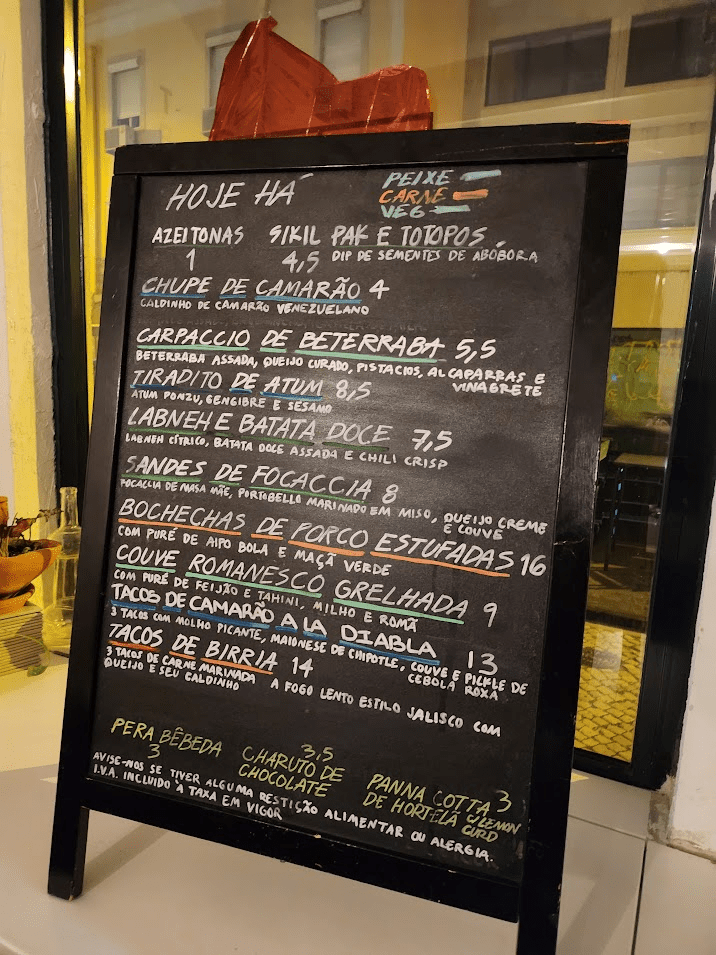 HOJE HÁ
PEIXE
CARNE
VEG
AZEITONAS
1
SIKIL PAK E TOTOPOS
4,5 DIP DE SEMENTES DE ABÓBORA
CHUPE DE CAMARÃO 4
CALDINHO DE CAMARÃO VENEZUELANO
CARPACCIO DE BETERRABA 5,5
BETERRABA ASSADA, QUEIJO CURADO, PISTACIOS, ALCAPARRAS E
VINAGRETE
TIRADITO DE ATUM 8,5
ATUM PONZU, GENGIBRE E SESAMO
LABNEH E BATATA DOCE 7,5
LABNEH CÍTRICO, BATATA DOCE ASSADA E CHILI CRISP
SANDES DE FOCACCIA 8
FOCACCIA DE MASA MÃE, PORTOBELLO MARINADO EM MISO, QUEIJO CREME
E COUVE
BOCHECHAS DE PORCO ESTUFADAS 16
COM PURÉ DE AIPO BOLA E MAÇÃ VERDE
COUVE ROMANESCO GRELHADA 9
COM PURÉ DE FEIJÃO E TAHINI, MILHO E ROMÃ
TACOS DE CAMARÃO A LA DIABLA 13
3 TACOS COM MOLHO PICANTE, MAIONESE DE CHIPOTLE, COUVE E PICKLE DE
CEBOLA ROXA
TACOS DE BIRRIA 14
3 TACOS DE CARNE MARINADA A FOGO LENTO ESTILO JALISCO COM
QUEIJO E SEU CALDINHO
PERA BÊBEDA
3
3,5
CHARUTO DE
CHOCOLATE
PANNA COTTA 3
DE HORTELÃ C/LEMON
CURD
AVISE-NOS SE TIVER ALGUMA RESTIÇÃO ALIMENTAR OU ALERGIA.
I.V.A. INCLUIDO À TAXA EM VIGOR